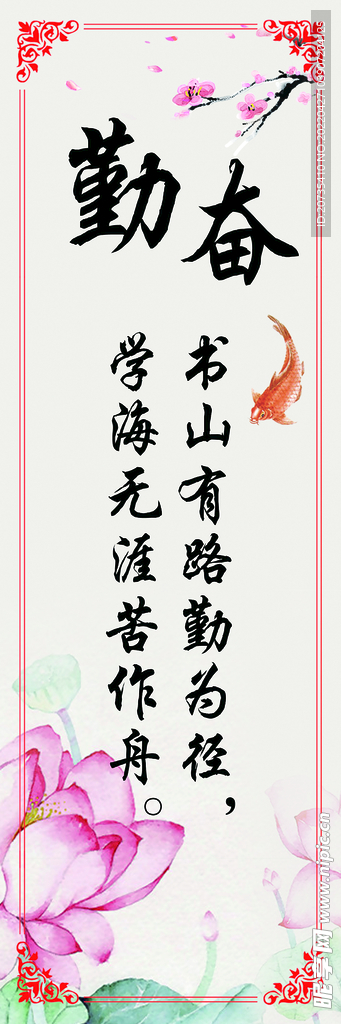 勤奋
书山有路勤为径，
学海无涯苦作舟。
ID:20735410 NO:20220427103907244105
昵享网 www.nipic.cn